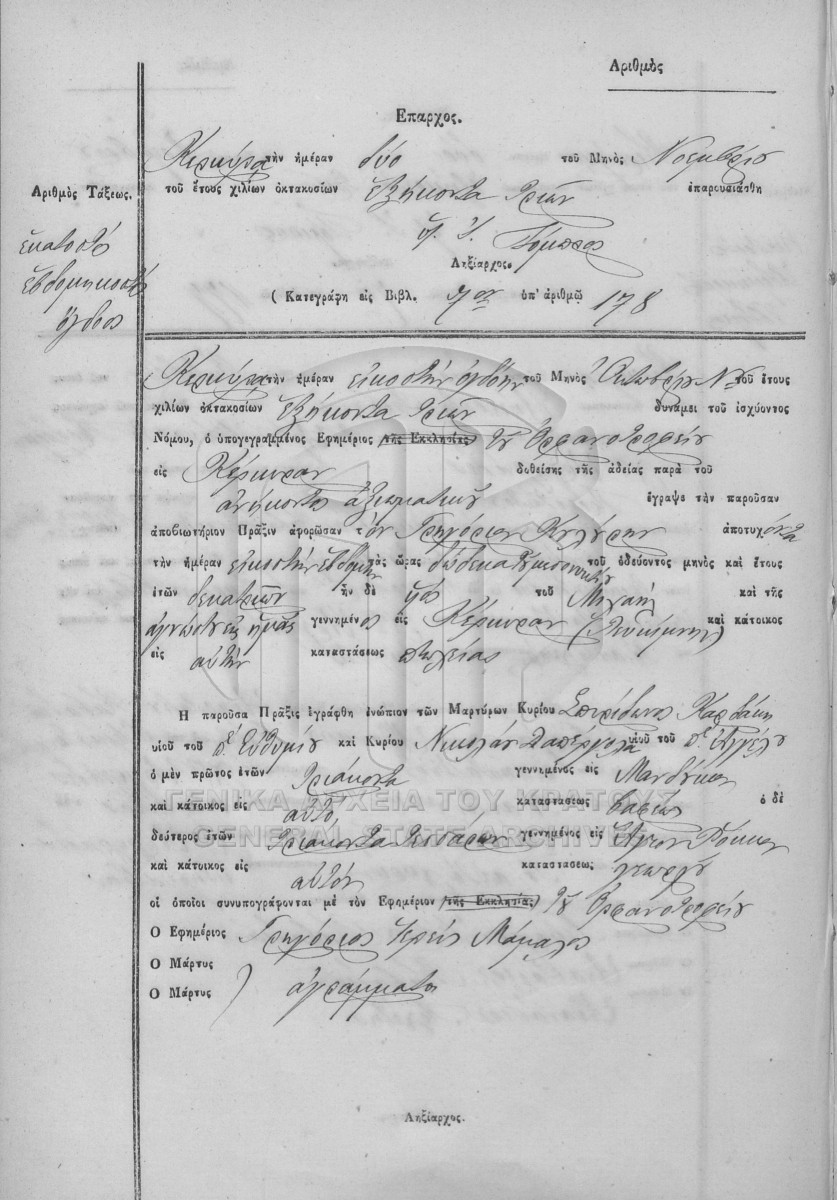 Ἀριθμὸς
Επαρχος.
Κερκύρα τὴν ἡμέραν δύο τοῦ Μηνὸς Νοεμβρίου
Ἀριθμὸς Τάξεως. τοῦ ἔτους χιλίων ὀκτακοσίων ἑξήκοντα τριῶν ἐπαρουσιάσθη
ἑκατοστὸς
ἑβδομηκοστὸς
ὄγδοος
Ληξίαρχος.
( Κατεγράφη εἰς Βιβλ. 7ον ὑπ' ἀριθμῷ 178
Κερκύρα τὴν ἡμέραν εἰκοστὴν ὀγδόην τοῦ Μηνὸς Ὀκτωβρίου τοῦ ἔτους
χιλίων ὀκτακοσίων ἑξήκοντα τριῶν δυνάμει τοῦ ἰσχύοντος
Νόμου, ὁ ὑπογεγραμμένος Ἐφημέριος τῆς Ἐκκλησίας τοῦ Ὀρφανοτροφείου
εἰς Κέρκυραν δοθείσης τῆς ἀδείας παρὰ τοῦ
ἀνήκοντος ἀξιωματικοῦ ἔγραψε τὴν παροῦσαν
ἀποβιωτήριον Πρᾶξιν ἀφορῶσαν τὸν Γρηγόριον ἀποτυχόντα
τὴν ἡμέραν εἰκοστὴν ἑβδόμην τὰς ὥρας δώδεκα τοῦ μεσονυκτίου τοῦ ὁδεύοντος μηνὸς καὶ ἔτους
ἐτῶν δεκατριῶν ἦν δὲ υἱὸς τοῦ Μιχαὴλ καὶ τῆς
ἀγνώστου εἰς ἡμᾶς γεννημένος εἰς Κέρκυραν (Λευκίμμην) καὶ κάτοικος
εἰς αὐτὴν καταστάσεως πτωχείας
Η παροῦσα Πρᾶξις ἐγράφθη ἐνώπιον τῶν Μαρτύρων Κυρίου Σπυρίδωνος Καρδάκη
υἱοῦ τοῦ π. Εὐθυμίου καὶ Κυρίου Νικολάου υἱοῦ τοῦ π. Ἀγγέλου
ὁ μὲν πρῶτος ἐτῶν τριάκοντα γεννημένος εἰς Μανδύκιον
καὶ κάτοικος εἰς αὐτὸ καταστάσεως βαφέως ὁ δὲ
δεύτερος ἐτῶν τριάκοντα τεσσάρων γεννημένος εἰς Ἅγιον Ρόκκον
καὶ κάτοικος εἰς αὐτὸν καταστάσεως γεωργοῦ
οἱ ὁποῖοι συνυπογράφονται μὲ τὸν Ἐφημέριον τῆς Ἐκκλησίας τοῦ Ὀρφανοτροφείου
Ο Ἐφημέριος Γρηγόριος Ἱερεὺς Μάμαλος
Ο Μάρτυς
Ο Μάρτυς ) ἀγράμματοι
Ληξίαρχος.
ΓΕΝΙΚΑ ΑΡΧΕΙΑ ΤΟΥ ΚΡΑΤΟΥΣ
GENERAL STATE ARCHIVES